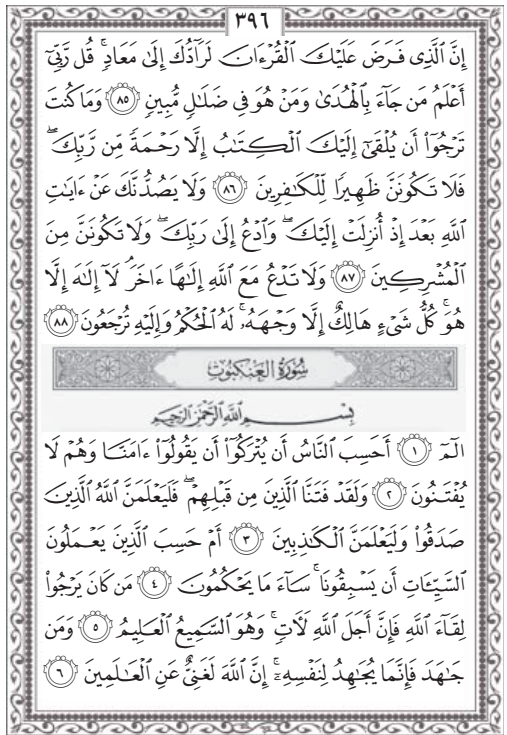 ٣٩٦
إِنَّ ٱلَّذِى فَرَضَ عَلَيْكَ ٱلْقُرْءَانَ لَرَآدُّكَ إِلَىٰ مَعَادٍ ۚ قُل رَّبِّىٓ
أَعْلَمُ مَن جَآءَ بِٱلْهُدَىٰ وَمَنْ هُوَ فِى ضَلَـٰلٍ مُّبِينٍ ۝٨٥ وَمَا كُنتَ
تَرْجُوٓا۟ أَن يُلْقَىٰٓ إِلَيْكَ ٱلْكِتَـٰبُ إِلَّا رَحْمَةً مِّن رَّبِّكَ ۖ
فَلَا تَكُونَنَّ ظَهِيرًا لِّلْكَـٰفِرِينَ ۝٨٦ وَلَا يَصُدُّنَّكَ عَنْ ءَايَـٰتِ
ٱللَّهِ بَعْدَ إِذْ أُنزِلَتْ إِلَيْكَ ۖ وَٱدْعُ إِلَىٰ رَبِّكَ ۖ وَلَا تَكُونَنَّ مِنَ
ٱلْمُشْرِكِينَ ۝٨٧ وَلَا تَدْعُ مَعَ ٱللَّهِ إِلَـٰهًا ءَاخَرَ ۘ لَآ إِلَـٰهَ إِلَّا
هُوَ ۚ كُلُّ شَىْءٍ هَالِكٌ إِلَّا وَجْهَهُۥ ۚ لَهُ ٱلْحُكْمُ وَإِلَيْهِ تُرْجَعُونَ ۝٨٨
سُورَةُ العَنكَبُوتِ
بِسْمِ ٱللَّهِ ٱلرَّحْمَـٰنِ ٱلرَّحِيمِ
الٓمٓ ۝١ أَحَسِبَ ٱلنَّاسُ أَن يُتْرَكُوٓا۟ أَن يَقُولُوٓا۟ ءَامَنَّا وَهُمْ لَا
يُفْتَنُونَ ۝٢ وَلَقَدْ فَتَنَّا ٱلَّذِينَ مِن قَبْلِهِمْ ۖ فَلَيَعْلَمَنَّ ٱللَّهُ ٱلَّذِينَ
صَدَقُوا۟ وَلَيَعْلَمَنَّ ٱلْكَـٰذِبِينَ ۝٣ أَمْ حَسِبَ ٱلَّذِينَ يَعْمَلُونَ
ٱلسَّيِّـَٔاتِ أَن يَسْبِقُونَا ۚ سَآءَ مَا يَحْكُمُونَ ۝٤ مَن كَانَ يَرْجُوا۟
لِقَآءَ ٱللَّهِ فَإِنَّ أَجَلَ ٱللَّهِ لَـَٔاتٍ ۚ وَهُوَ ٱلسَّمِيعُ ٱلْعَلِيمُ ۝٥ وَمَن
جَـٰهَدَ فَإِنَّمَا يُجَـٰهِدُ لِنَفْسِهِۦٓ ۚ إِنَّ ٱللَّهَ لَغَنِىٌّ عَنِ ٱلْعَـٰلَمِينَ ۝٦